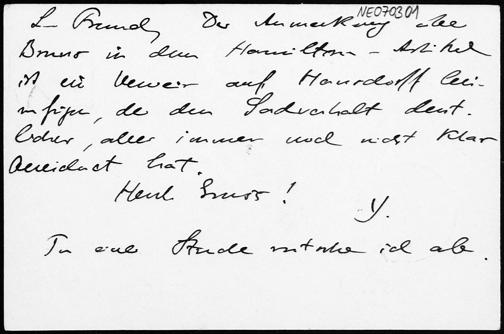 NE070301
L. Freund, Der Anmerkung über
Bruns in dem Hamilton-Artikel
ist ein Verweis auf Hausdorff bei-
zufügen, der den Sachverhalt deut-
licher, aber immer noch nicht klar
bezeichnet hat.
Herzl. Gruss!
Y.
In einer Stunde ich ab.